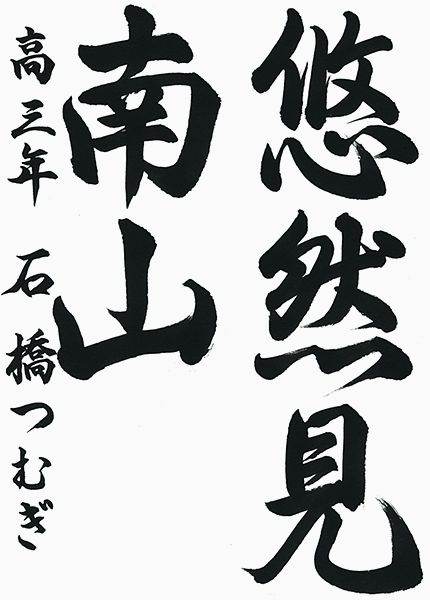 悠然見
南山
高三年 石橋つむぎ